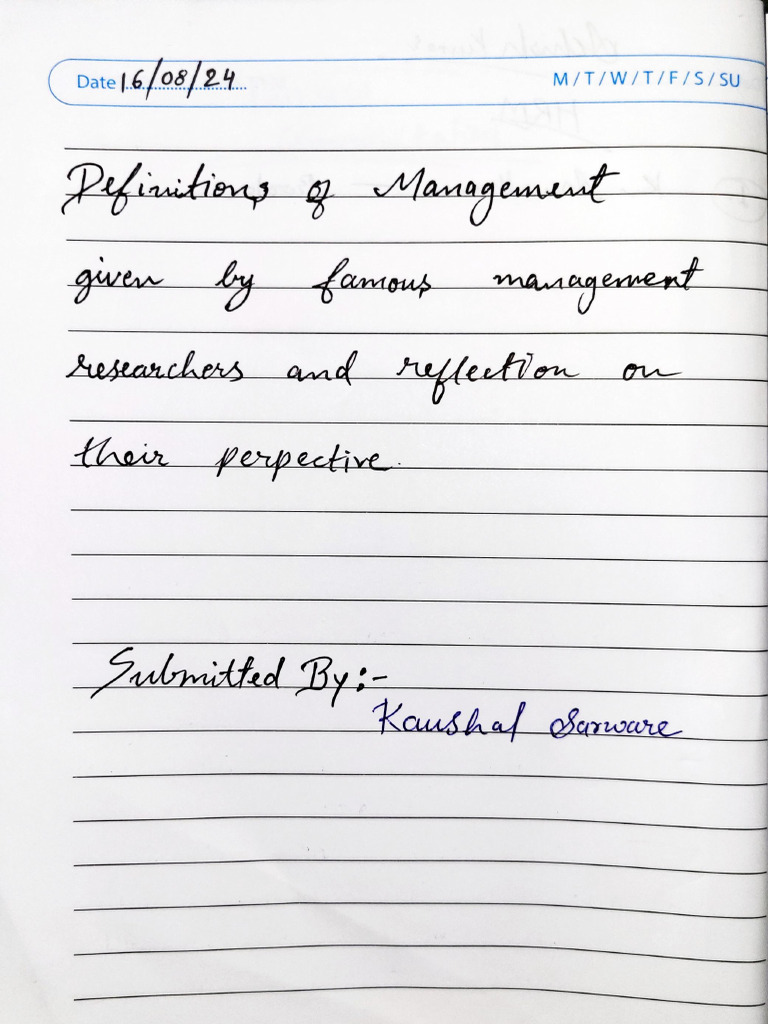 Date 16/08/24 M/T/W/T/F/S/SU
Definitions of Management
given by famous management
researchers and reflection on
their perpective.
Submitted By:-
Kaushal Sarware